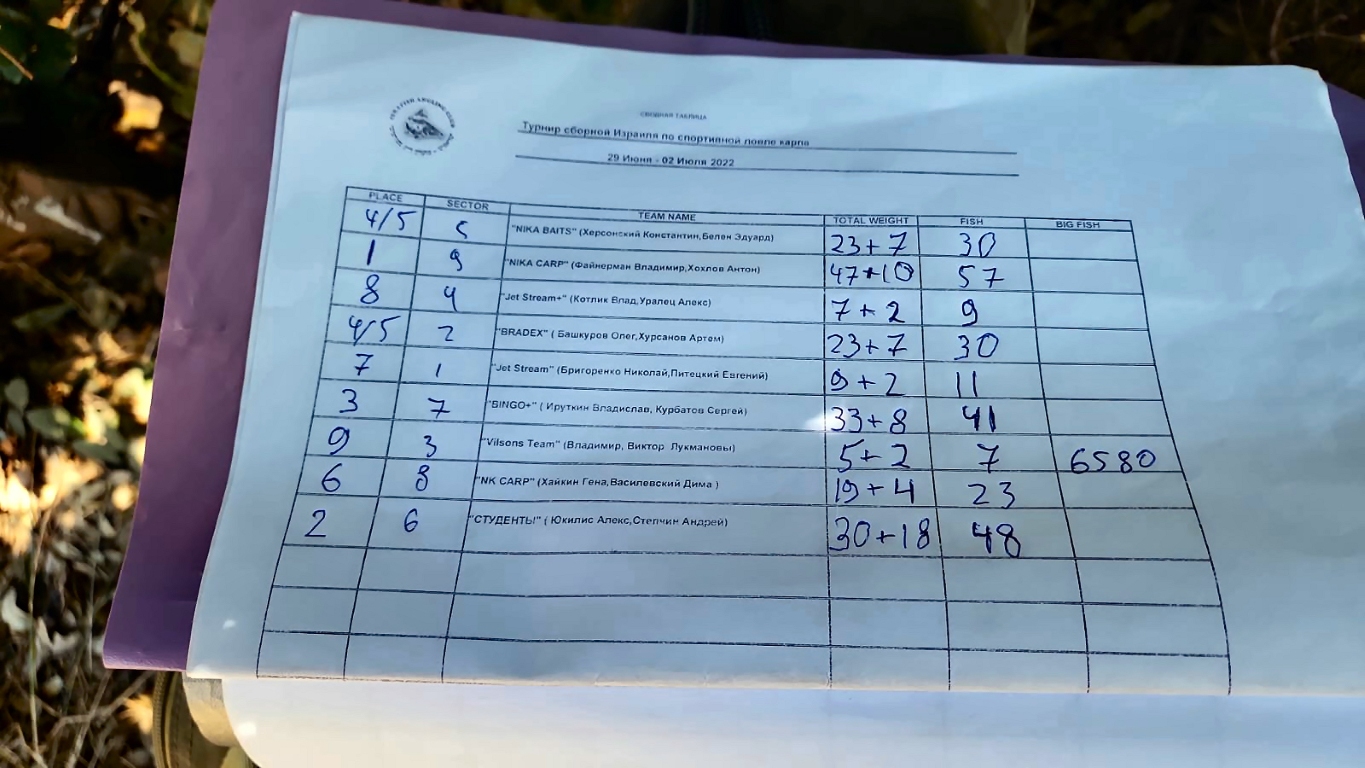 СВОДНАЯ ТАБЛИЦА
Турнир сборной Израиля по спортивной ловле карпа
29 Июня - 02 Июля 2022
PLACE SECTOR TEAM NAME TOTAL WEIGHT FISH BIG FISH
4/5 5 "NIKA BAITS" (Херсонский Константин,Белен Эдуард) 23+7 30
1 9 "NIKA CARP" (Файнерман Владимир,Хохлов Антон) 47+10 57
8 4 "Jet Stream+" (Котлик Влад,Уралец Алекс) 7+2 9
4/5 2 "BRADEX" ( Башкуров Олег,Хурсанов Артем) 23+7 30
7 1 "Jet Stream" (Бригоренко Николай,Питецкий Евгений) 9+2 11
3 7 "BINGO+" ( Ируткин Владислав, Курбатов Сергей) 33+8 41
9 3 "Vilsons Team" (Владимир, Виктор Лукмановы) 5+2 7 6580
6 8 "NK CARP" (Хайкин Гена,Василевский Дима ) 19+4 23
2 6 "СТУДЕНТЫ" ( Юкилис Алекс,Степчин Андрей) 30+18 48